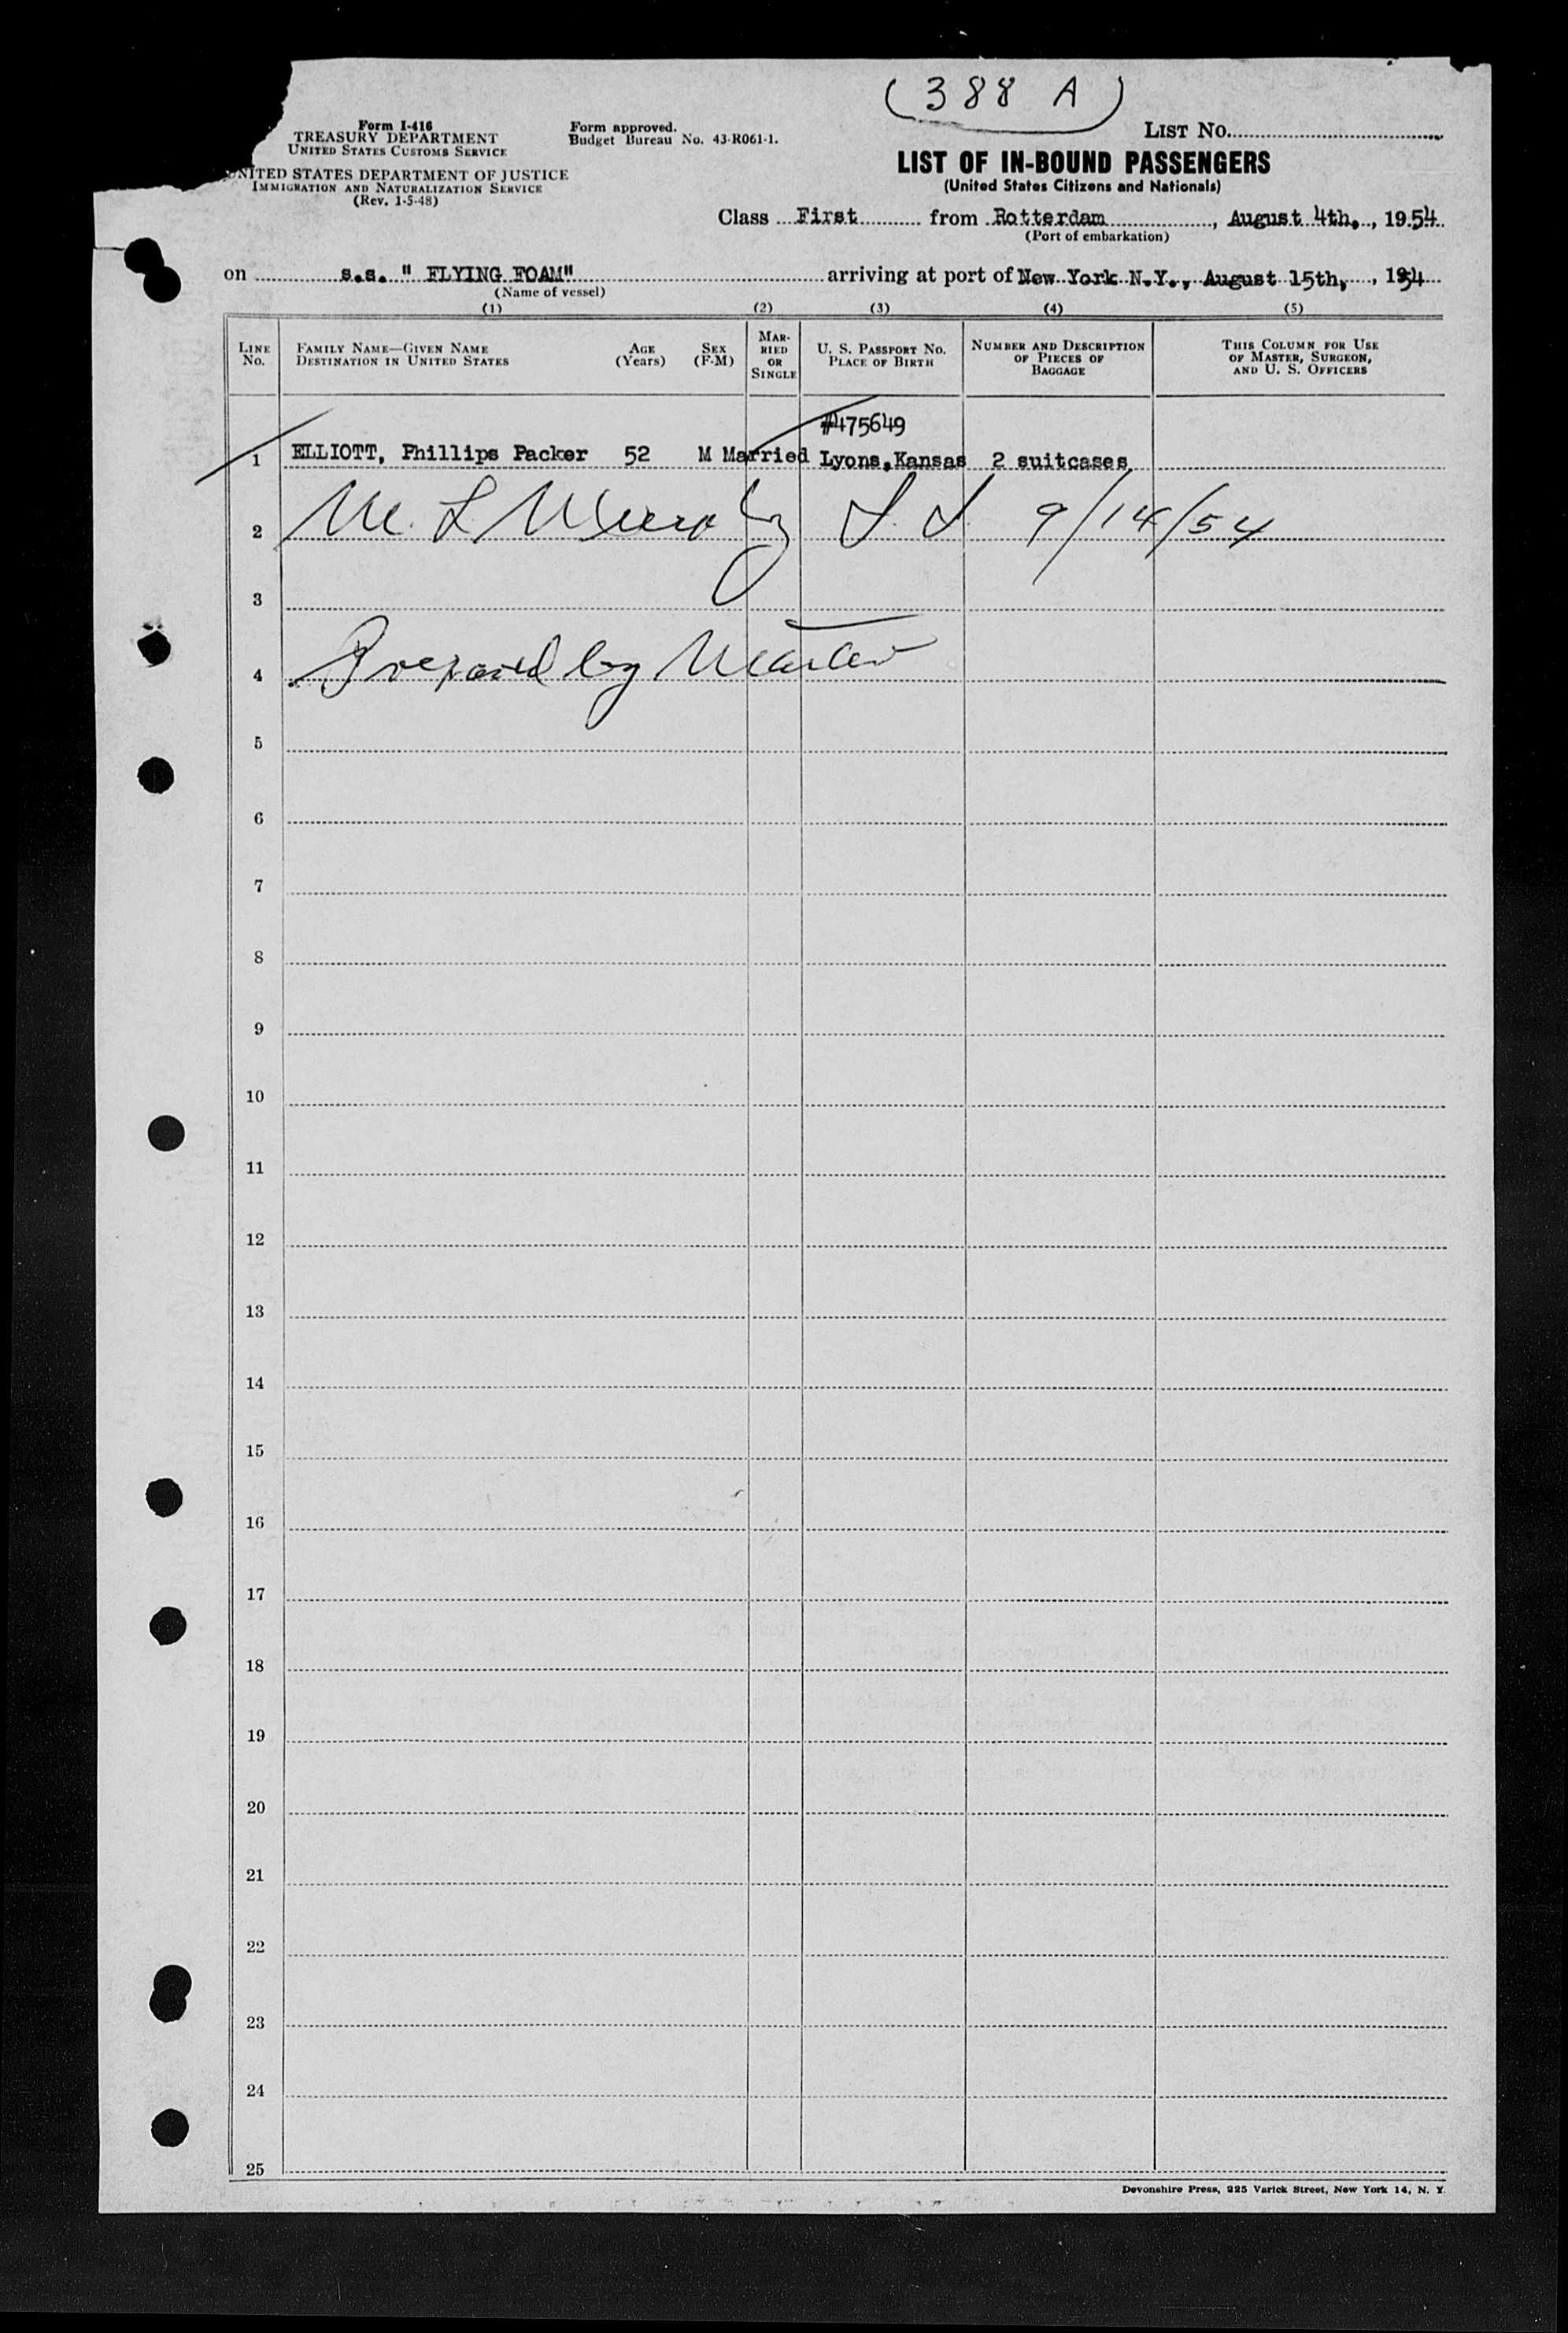 (388 A)
Form I-416
TREASURY DEPARTMENT
UNITED STATES CUSTOMS SERVICE
UNITED STATES DEPARTMENT OF JUSTICE
IMMIGRATION AND NATURALIZATION SERVICE
(Rev. 1-5-48)
Form approved.
Budget Bureau No. 43-R061-1.
LIST No.
LIST OF IN-BOUND PASSENGERS
(United States Citizens and Nationals)
Class First from Rotterdam, August 4th, , 1954
(Port of embarkation)
on s.s. " FLYING FOAM" arriving at port of New York N.Y., August 15th, , 1954
(Name of vessel)
(1) (2) (3) (4) (5)
LINE No. FAMILY NAME—GIVEN NAME DESTINATION IN UNITED STATES AGE (Years) SEX (F-M) MARRIED OR SINGLE U. S. PASSPORT No. PLACE OF BIRTH NUMBER AND DESCRIPTION OF PIECES OF BAGGAGE THIS COLUMN FOR USE OF MASTER, SURGEON, AND U. S. OFFICERS
#475649
1 ELLIOTT, Phillips Packer 52 M Married Lyons,Kansas 2 suitcases
2 M. L Murphy 9/14/54
3
4 Prepared by Master
5
6
7
8
9
10
11
12
13
14
15
16
17
18
19
20
21
22
23
24
25
Devonshire Press, 225 Varick Street, New York 14, N. Y.